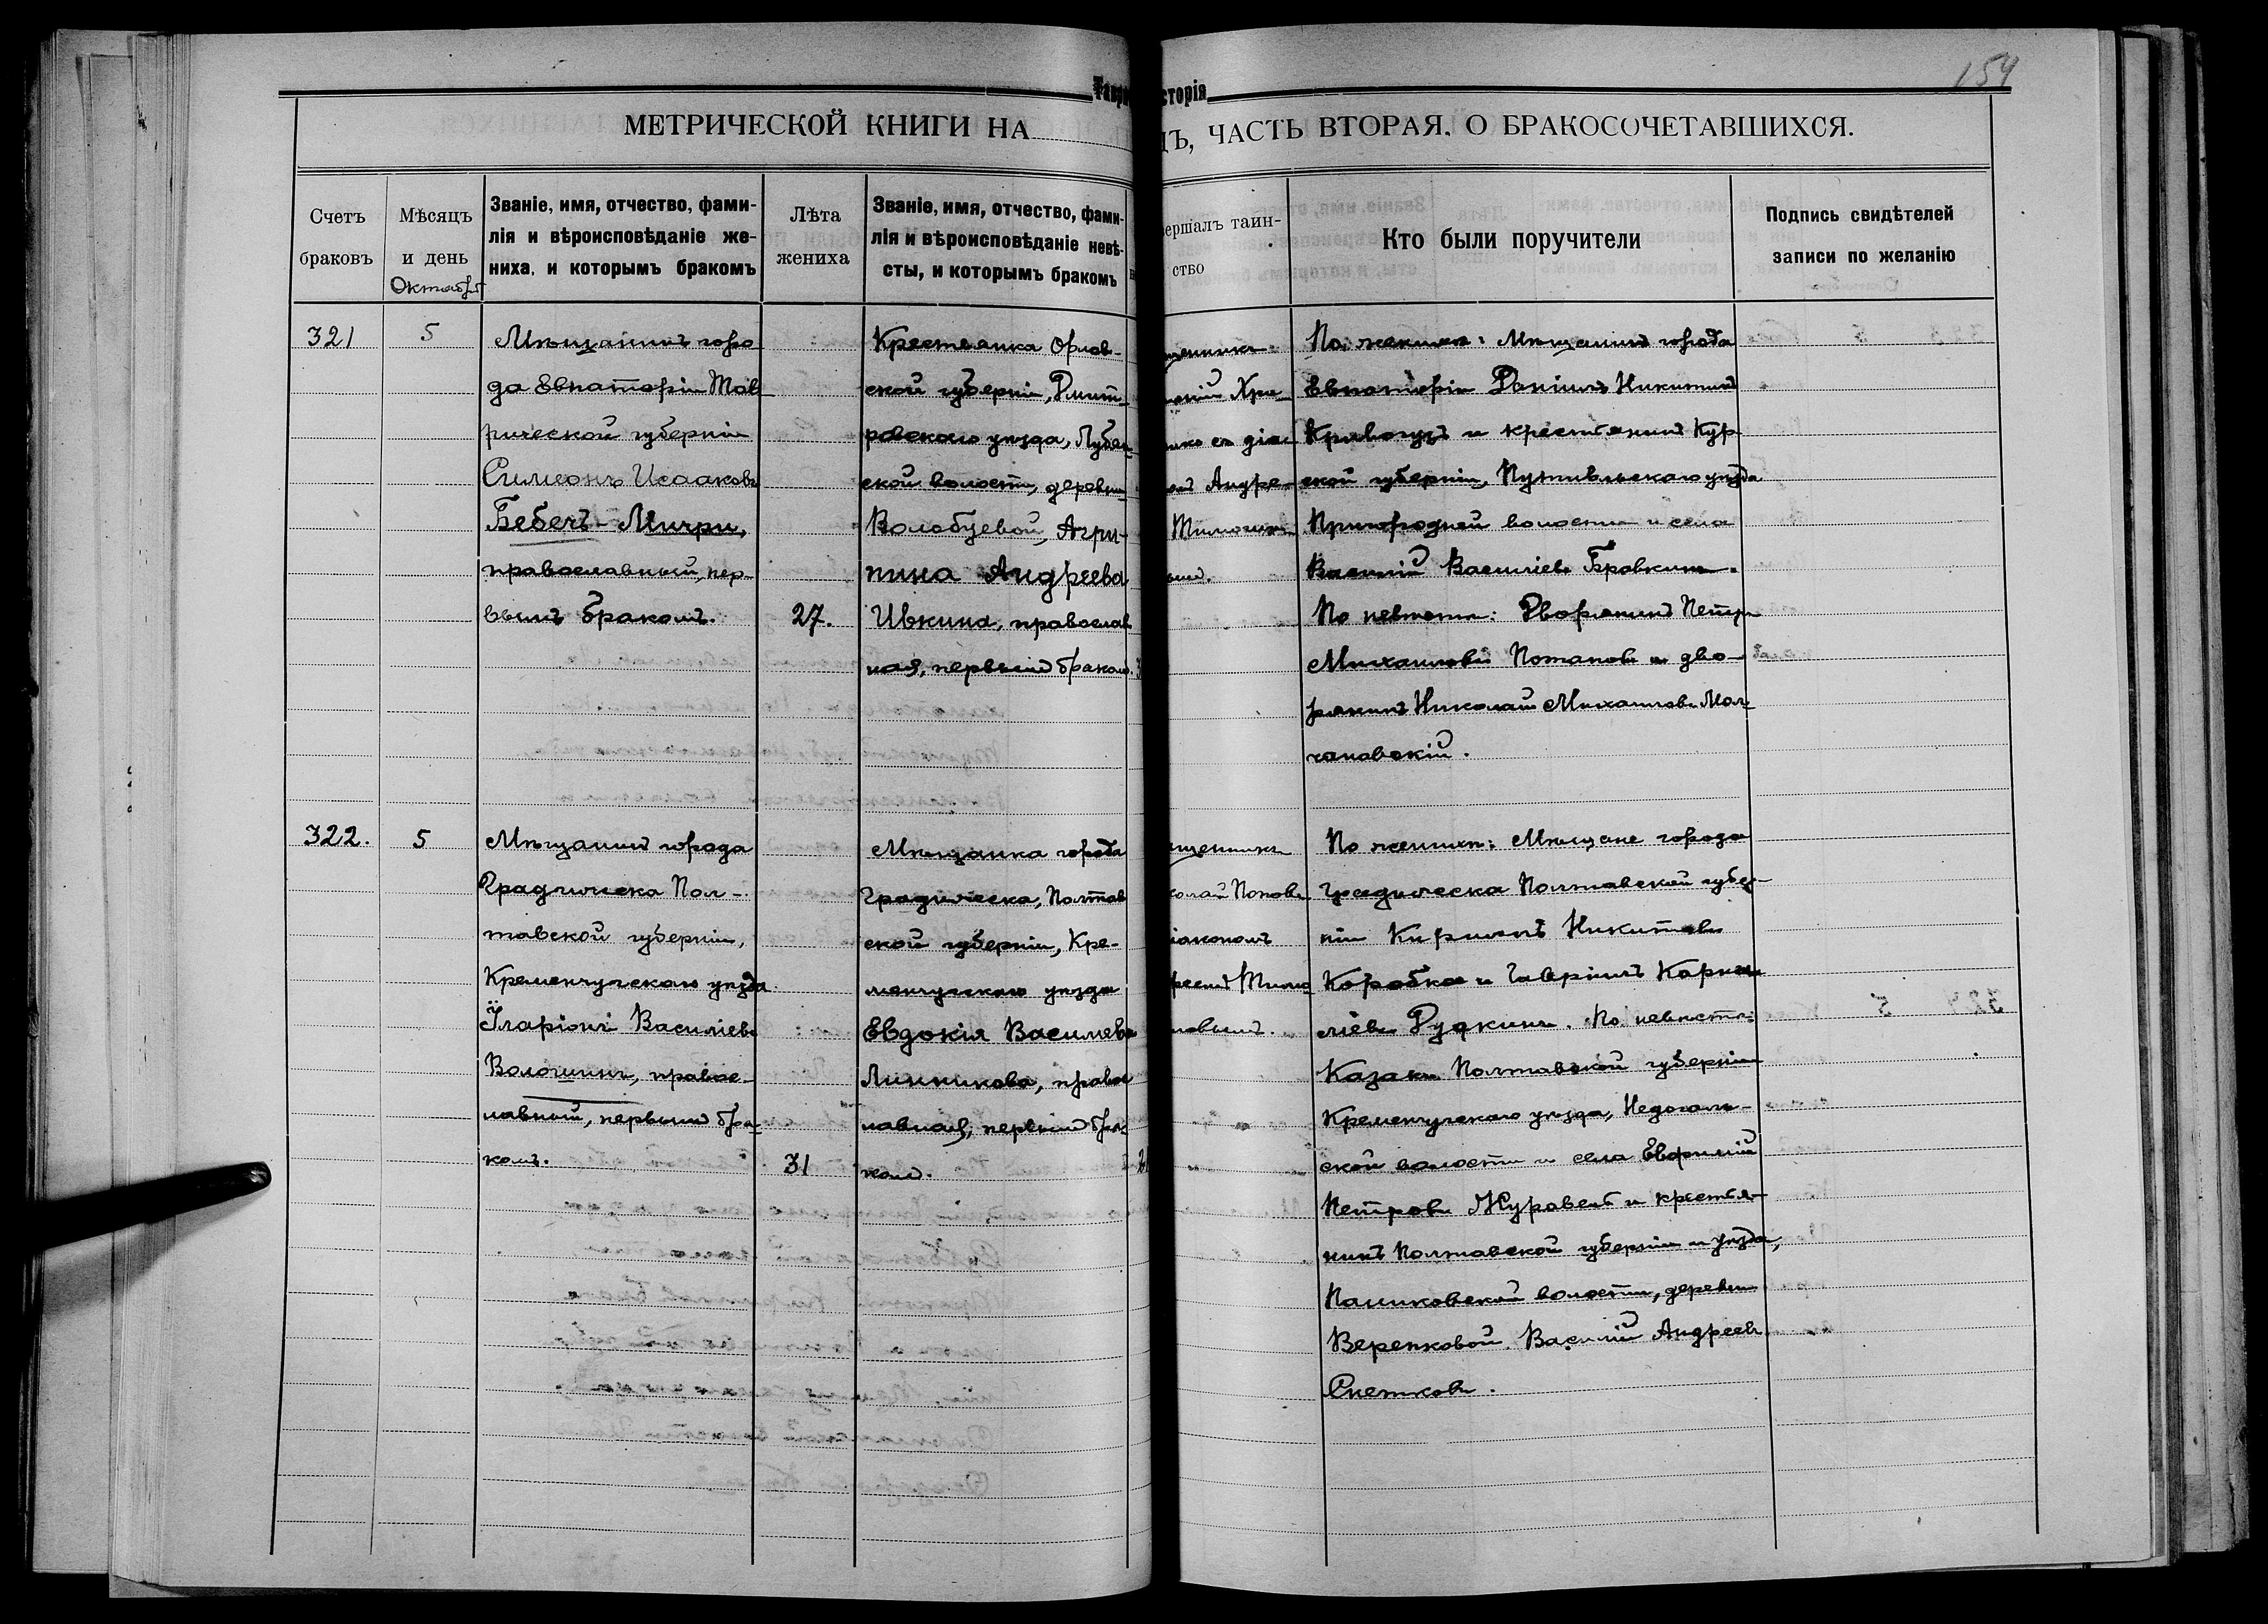 154
Тавр
сторія
МЕТРИЧЕСКОЙ КНИГИ НА
Ъ, ЧАСТЬ ВТОРАЯ, О БРАКОСОЧЕТАВШИХСЯ.
Счетъ
браковъ
Мѣсяцъ
и день
Октябрь
Званіе, имя, отчество, фами-
лія и вѣроисповѣданіе же-
ниха, и которымъ бракомъ
Лѣта
жениха
Званіе, имя, отчество, фами-
лія и вѣроисповѣданіе невѣ-
сты, и которымъ бракомъ
вершалъ таин-
ство
Кто были поручители
Подпись свидѣтелей
записи по желанію
321
5
Мѣщанинъ горо
да Евпаторіи Тав
рической губерніи
Симеонъ Исааковъ
Бебечъ-Мичри,
православный, пер-
вымъ бракомъ.
27.
Крестьянка Орлов-
ской губерніи, Дмит-
ровскаго уѣзда,
ской волости, деревни
Волобуевой, Агри-
пина Андреева
Ивкина, православ
ная, первымъ бракомъ.
щенникъ
ко съ діа
Андре
ым.
По женихѣ: Мѣщанинъ города
Евпаторіи Даніилъ Никитинъ
Кривогузъ и крестьянинъ Кур
ской губерніи, Путивльскаго уѣзда
Пригородней волости и села
Василій Васильевъ Бровкинъ.
По невѣстѣ: Дворянинъ Петръ
Михаиловъ Потаповъ и дво-
рянинъ Николай Михаиловъ Мол-
чановскій.
322.
5
Мѣщанинъ города
Градижска Пол-
тавской губерніи,
Кременчугскаго уѣзда
Иларіонъ Васильевъ
Волошинъ, правос-
лавный, первымъ бра-
комъ.
31
Мѣщанка города
Градижска, Полтав
ской губерніи, Кре-
менчугскаго уѣзда
Евдокія Васильева
Линникова, правос
лавная, первымъ бра-
комъ.
щенникъ
колай Поповъ
іакономъ
реемъ Тимо
новымъ.
По женихѣ: Мѣщане города
Градижска Полтавской губер-
ніи Кириллъ Никитовъ
Коробка и Гавріилъ Корни
ліевъ Рудкинъ. По невѣстѣ:
Казакъ Полтавской губерніи
Кременчугскаго уѣзда, Недогар-
ской волости и села Евфимій
Петровъ Журавель и крестья-
нинъ Полтавской губерніи и уѣзда,
волости, деревни
Веренковой Василій Андреевъ
Снетковъ.